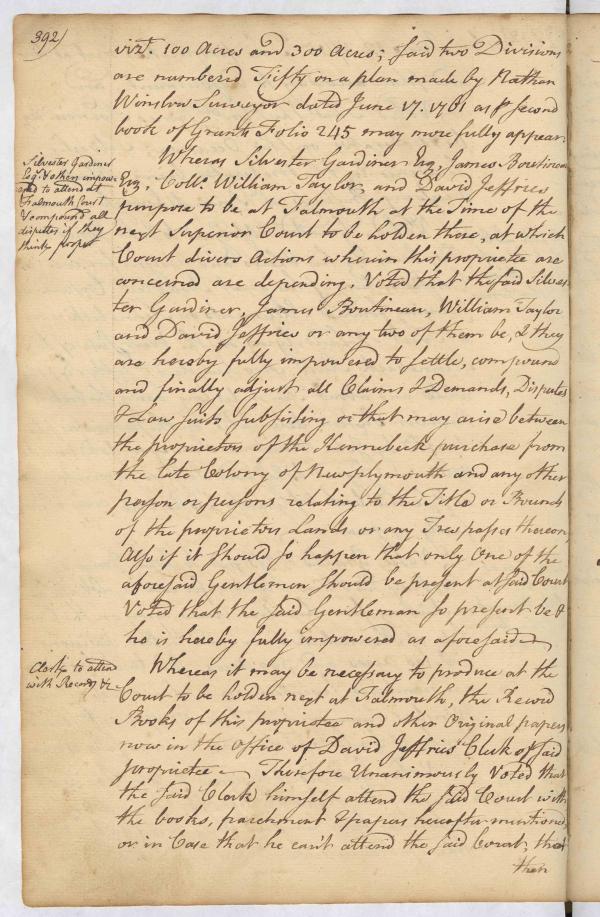 392)
vizt. 100 Acres and 300 Acres; Said two Divisions
are numbered Fifty on a plan made by Nathan
Winslow Surveyor dated June 17. 1761 as pr Second
book of Grants Folio 245 may more fully appear.
Silvester Gardiner
Esqr. & others impow-
ered to attend at
Falmouth Court
to compound all
disputes if they
think proper
Whereas Silvester Gardiner Esq, James Boutineau
Esq, Collo. William Taylor, and David Jeffries
purpose to be at Falmouth at the Time of the
next Superior Court to be holden there, at which
Court divers Actions wherein this proprietee are
concerned are depending. Voted that the said Silves-
ter Gardiner, James Boutineau, William Taylor
and David Jeffries or any two of them be, & they
are hereby fully impowered to settle, compound
and finally adjust all Claims & Demands, Disputes
& Law Suits subsisting or that may arise between
the proprietors of the Kennebeck purchase from
the late Colony of Newplymouth and any other
person or persons relating to the Title or Bounds
of the proprietors Lands or any Trespasses thereon,
Also if it should so happen that only One of the
aforesaid Gentlemen should be present at said Court
Voted that the said Gentleman so present be &
he is hereby fully impowered as aforesaid
Clerk to attend
with Records &c
Whereas it may be necessary to produce at the
Court to be holden next at Falmouth, the Record
Books of this proprietee and other Original papers
now in the office of David Jeffries Clerk of said
proprietee Therefore Unanimously Voted that
the said Clerk himself attend the said Court with
the books, parchment & papers hereafter mentioned
or in Case that he can't attend the said Court, that
then